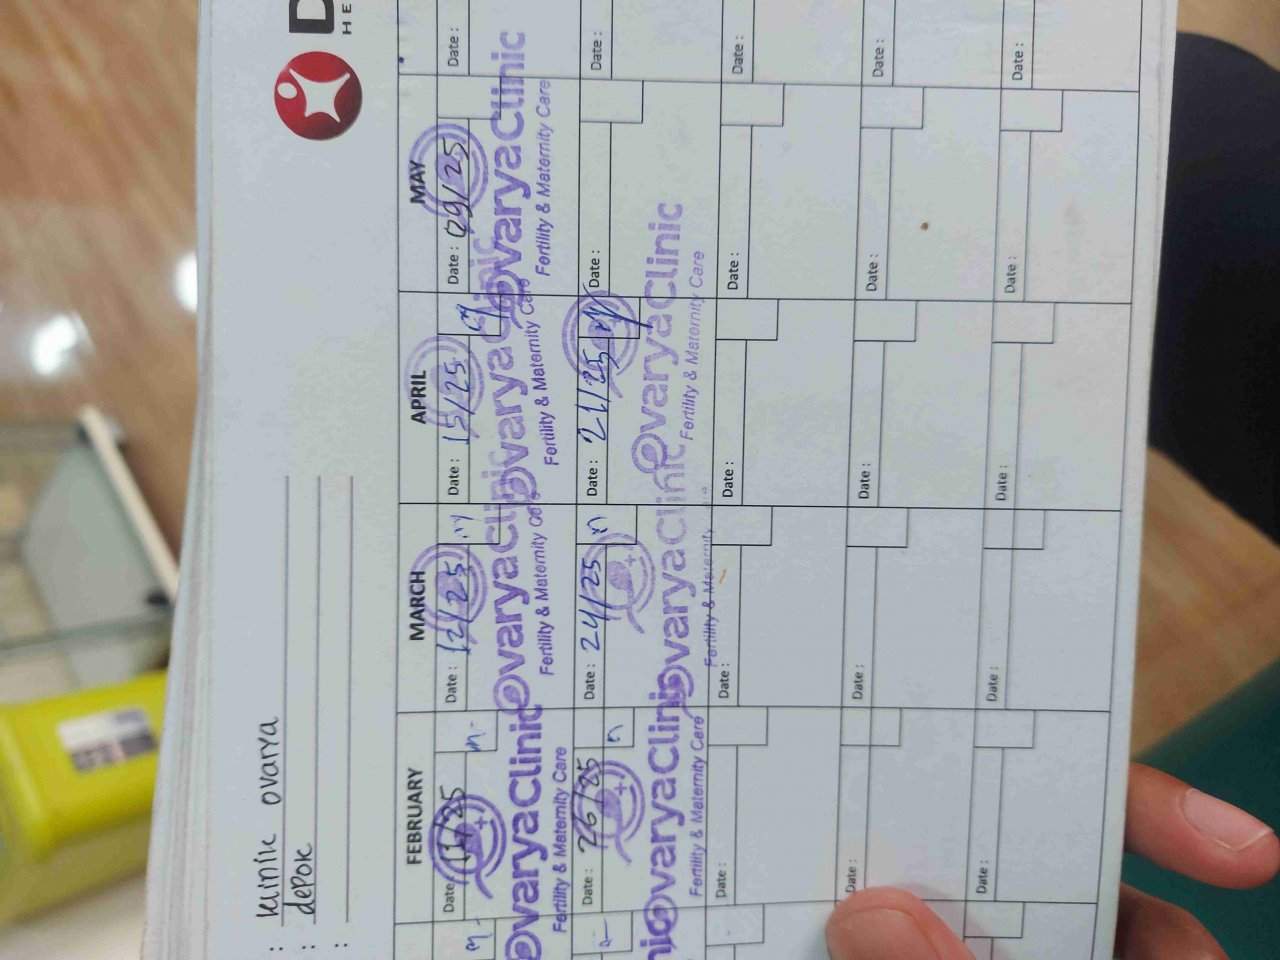 D
HE
: klinik ovarya
: depok
:
FEBRUARY MARCH APRIL MAY
Date : 11/25 Date : 12/25 Date : 15/25 Date : 09/25 Date :
ovaryaClinic ovaryaClinic ovaryaClinic ovaryaClinic
Fertility & Maternity Care Fertility & Maternity Care Fertility & Maternity Care Fertility & Maternity Care
Date : 26/25 Date : 24/25 Date : 21/25 Date : Date :
nic ovaryaClinic ovaryaClinic ovaryaClinic
Fertility & Maternity Care Fertility & Maternity Fertility & Maternity Care
Date : Date : Date : Date : Date :
Date : Date : Date : Date : Date :
Date : Date : Date : Date : Date :